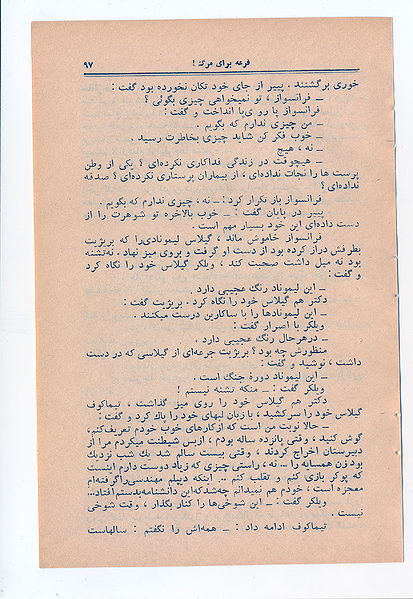 قرعه برای مرگ ! ۹۷
خوری برگشتند . پییر از جای خود تکان نخورده بود گفت :
ــ فرانسواز ، تو نمیخواهی چیزی بگوئی ؟
فرانسواز پا روی پا انداخت و گفت :
ــ من چیزی ندارم که بگویم .
ــ خوب فکر کن شاید چیزی بخاطرت رسید .
ــ نه ، هیچ
ــ هیچوقت در زندگی فداکاری نکرده‌ای ؟ یکی از وطن
پرست ها را نجات نداده‌ای ، از بیماران پرستاری نکرده‌ای ؟ صدقه
نداده‌ای ؟
فرانسواز باز تکرار کرد : ــ نه ، چیزی ندارم که بگویم .
پییر در پایان گفت : ــ خوب بالاخره تو شوهرت را از
دست داده‌ای این خود بسیار مهم است .
فرانسواز خاموش ماند ، گیلاس لیمونادی‌را که بریژیت
بطرفش دراز کرده بود از دست او گرفت و بروی میز نهاد . نه‌تشنه
بود نه میل داشت صحبت کند ، ویلکر گیلاس خود را نگاه کرد
و گفت :
ــ این لیموناد رنگ عجیبی دارد .
دکتر هم گیلاس خود را نگاه کرد . بریژیت گفت :
ــ این لیمونادها را با ساکارین درست میکنند .
ویلکر با اصرار گفت :
ــ درهرحال رنگ عجیبی دارد .
منظورش چه بود ؟ بریژیت جرعه‌ای از گیلاسی که در دست
داشت ، نوشید و گفت :
ــ این لیموناد دورهٔ جنگ است .
ویلکر گفت : ــ منکه تشنه نیستم !
دکتر هم گیلاس خود را روی میز گذاشت ، تیماکوف
گیلاس خود را سرکشید ، با زبان لبهای خود را پاک کرد و گفت :
ــ حالا نوبت من است که ازکارهای خوب خودم تعریف‌کنم،
گوش کنید ، وقتی پانزده ساله بودم ، ازبس شیطنت میکردم مرا از
دبیرستان اخراج کردند ، وقتی بیست سالم شد یك شب نزدیك
بود زن همسایه را ... نه ، راستی چیزی که زیاد دوست دارم اینست
که پوکر بازی کنم و تقلب کنم .. اینکه دیپلم مهندسی‌راگرفته‌ام
معجزه است ، خودم هم نمیدانم چه‌شدکه‌این دانشنامه‌بدستم‌افتاد...
ویلکر گفت : ــ این شوخی‌ها را کنار بگذار ، وقت شوخی
نیست .
تیماکوف ادامه داد : ــ همه‌اش را نگفتم : سالهاست